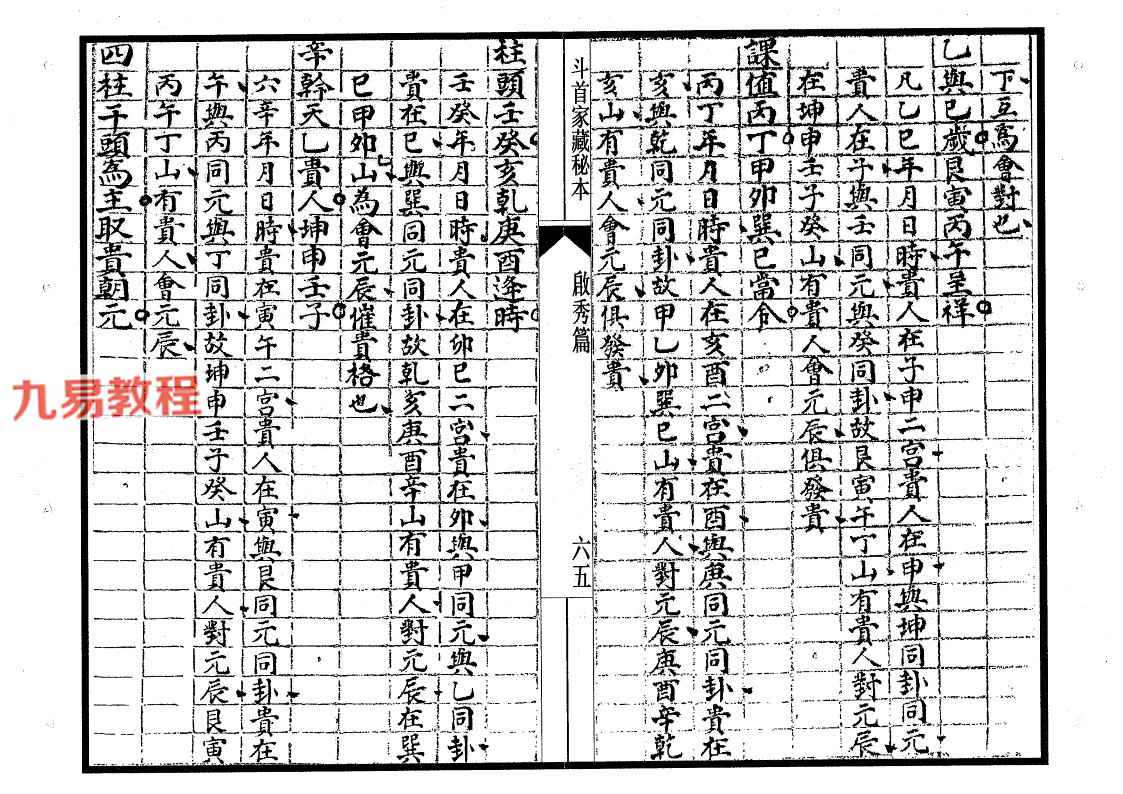 下互為會對也
乙與巳歲艮寅丙午呈祥
凡乙巳年月日時貴人在子申二宮貴人在申與坤同卦同元
貴人在子與壬同元與癸同卦故艮寅午丁山有貴人對元辰
在坤申壬子癸山有貴人會元辰俱發貴
課值丙丁甲卯巽巳當合
丙丁年月日時貴人在亥酉二宮貴在酉與庚同元同卦貴在
亥與乾同元同卦故甲乙卯巽巳山有貴人對元辰庚酉辛乾
亥山有貴人會元辰俱發貴
斗首家藏秘本
啟秀篇
六五
柱頭壬癸亥乾庚酉逢時
壬癸年月日時貴人在卯巳二宮貴在卯與甲同元與乙同卦
貴在巳與巽同元同卦故乾亥庚酉辛山有貴人對元辰在巽
巳甲卯山為會元辰催貴格也
辛幹天乙貴人坤申壬子
六辛年月日時貴在寅午二宮貴人在寅與艮同元同卦貴在
午與丙同元與丁同卦故坤申壬子癸山有貴人對元辰艮寅
丙午丁山有貴人會元辰
四柱干頭為主取貴朝元
九易教程